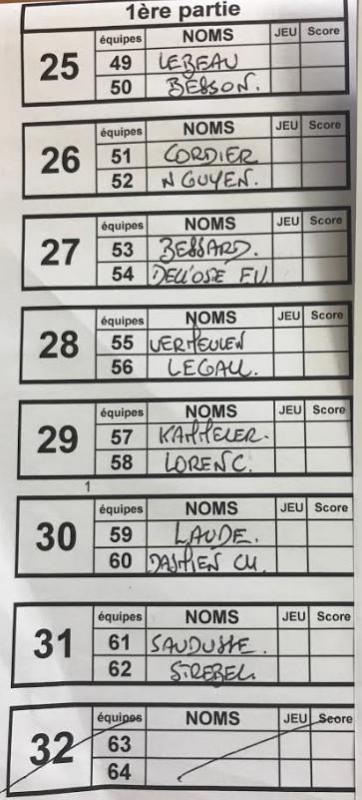 1ère partie
25 équipes NOMS JEU Score
49 LEBEAU
50 BESSON.
26 équipes NOMS JEU Score
51 CORDIER
52 NGUYEN.
27 équipes NOMS JEU Score
53 BESSARD.
54 DELL'OSE
28 équipes NOMS JEU Score
55 VERMEULEN
56 LEGALL.
29 équipes NOMS JEU Score
57
58 LORENC.
1
30 équipes NOMS JEU Score
59 LAUDE.
60 DAMIEN CH.
31 équipes NOMS JEU Score
61
62 STREBEL.
32 équipes NOMS JEU Score
63
64